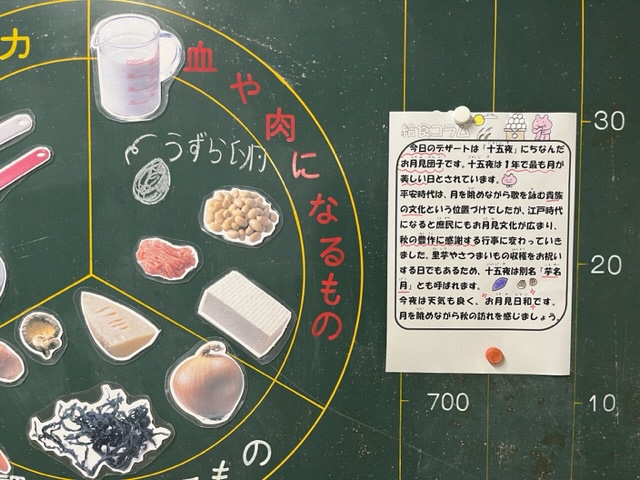 力
血や肉になるもの
うずら(卵)
もの
給食コラム
今日のデザートは「十五夜」にちなんだ
お月見団子です。十五夜は1年で最も月が
美しい日とされています。
平安時代は、月を眺めながら歌を詠む貴族
の文化という位置づけでしたが、江戸時代
になると庶民にもお月見文化が広まり、
秋の豊作に感謝する行事に変わっていき
ました。里芋やさつまいもの収穫をお祝い
する日でもあるため、十五夜は別名「芋名
月」とも呼ばれます。
今夜は天気も良く、お月見日和です。
月を眺めながら秋の訪れを感じましょう。
30
20
700
10